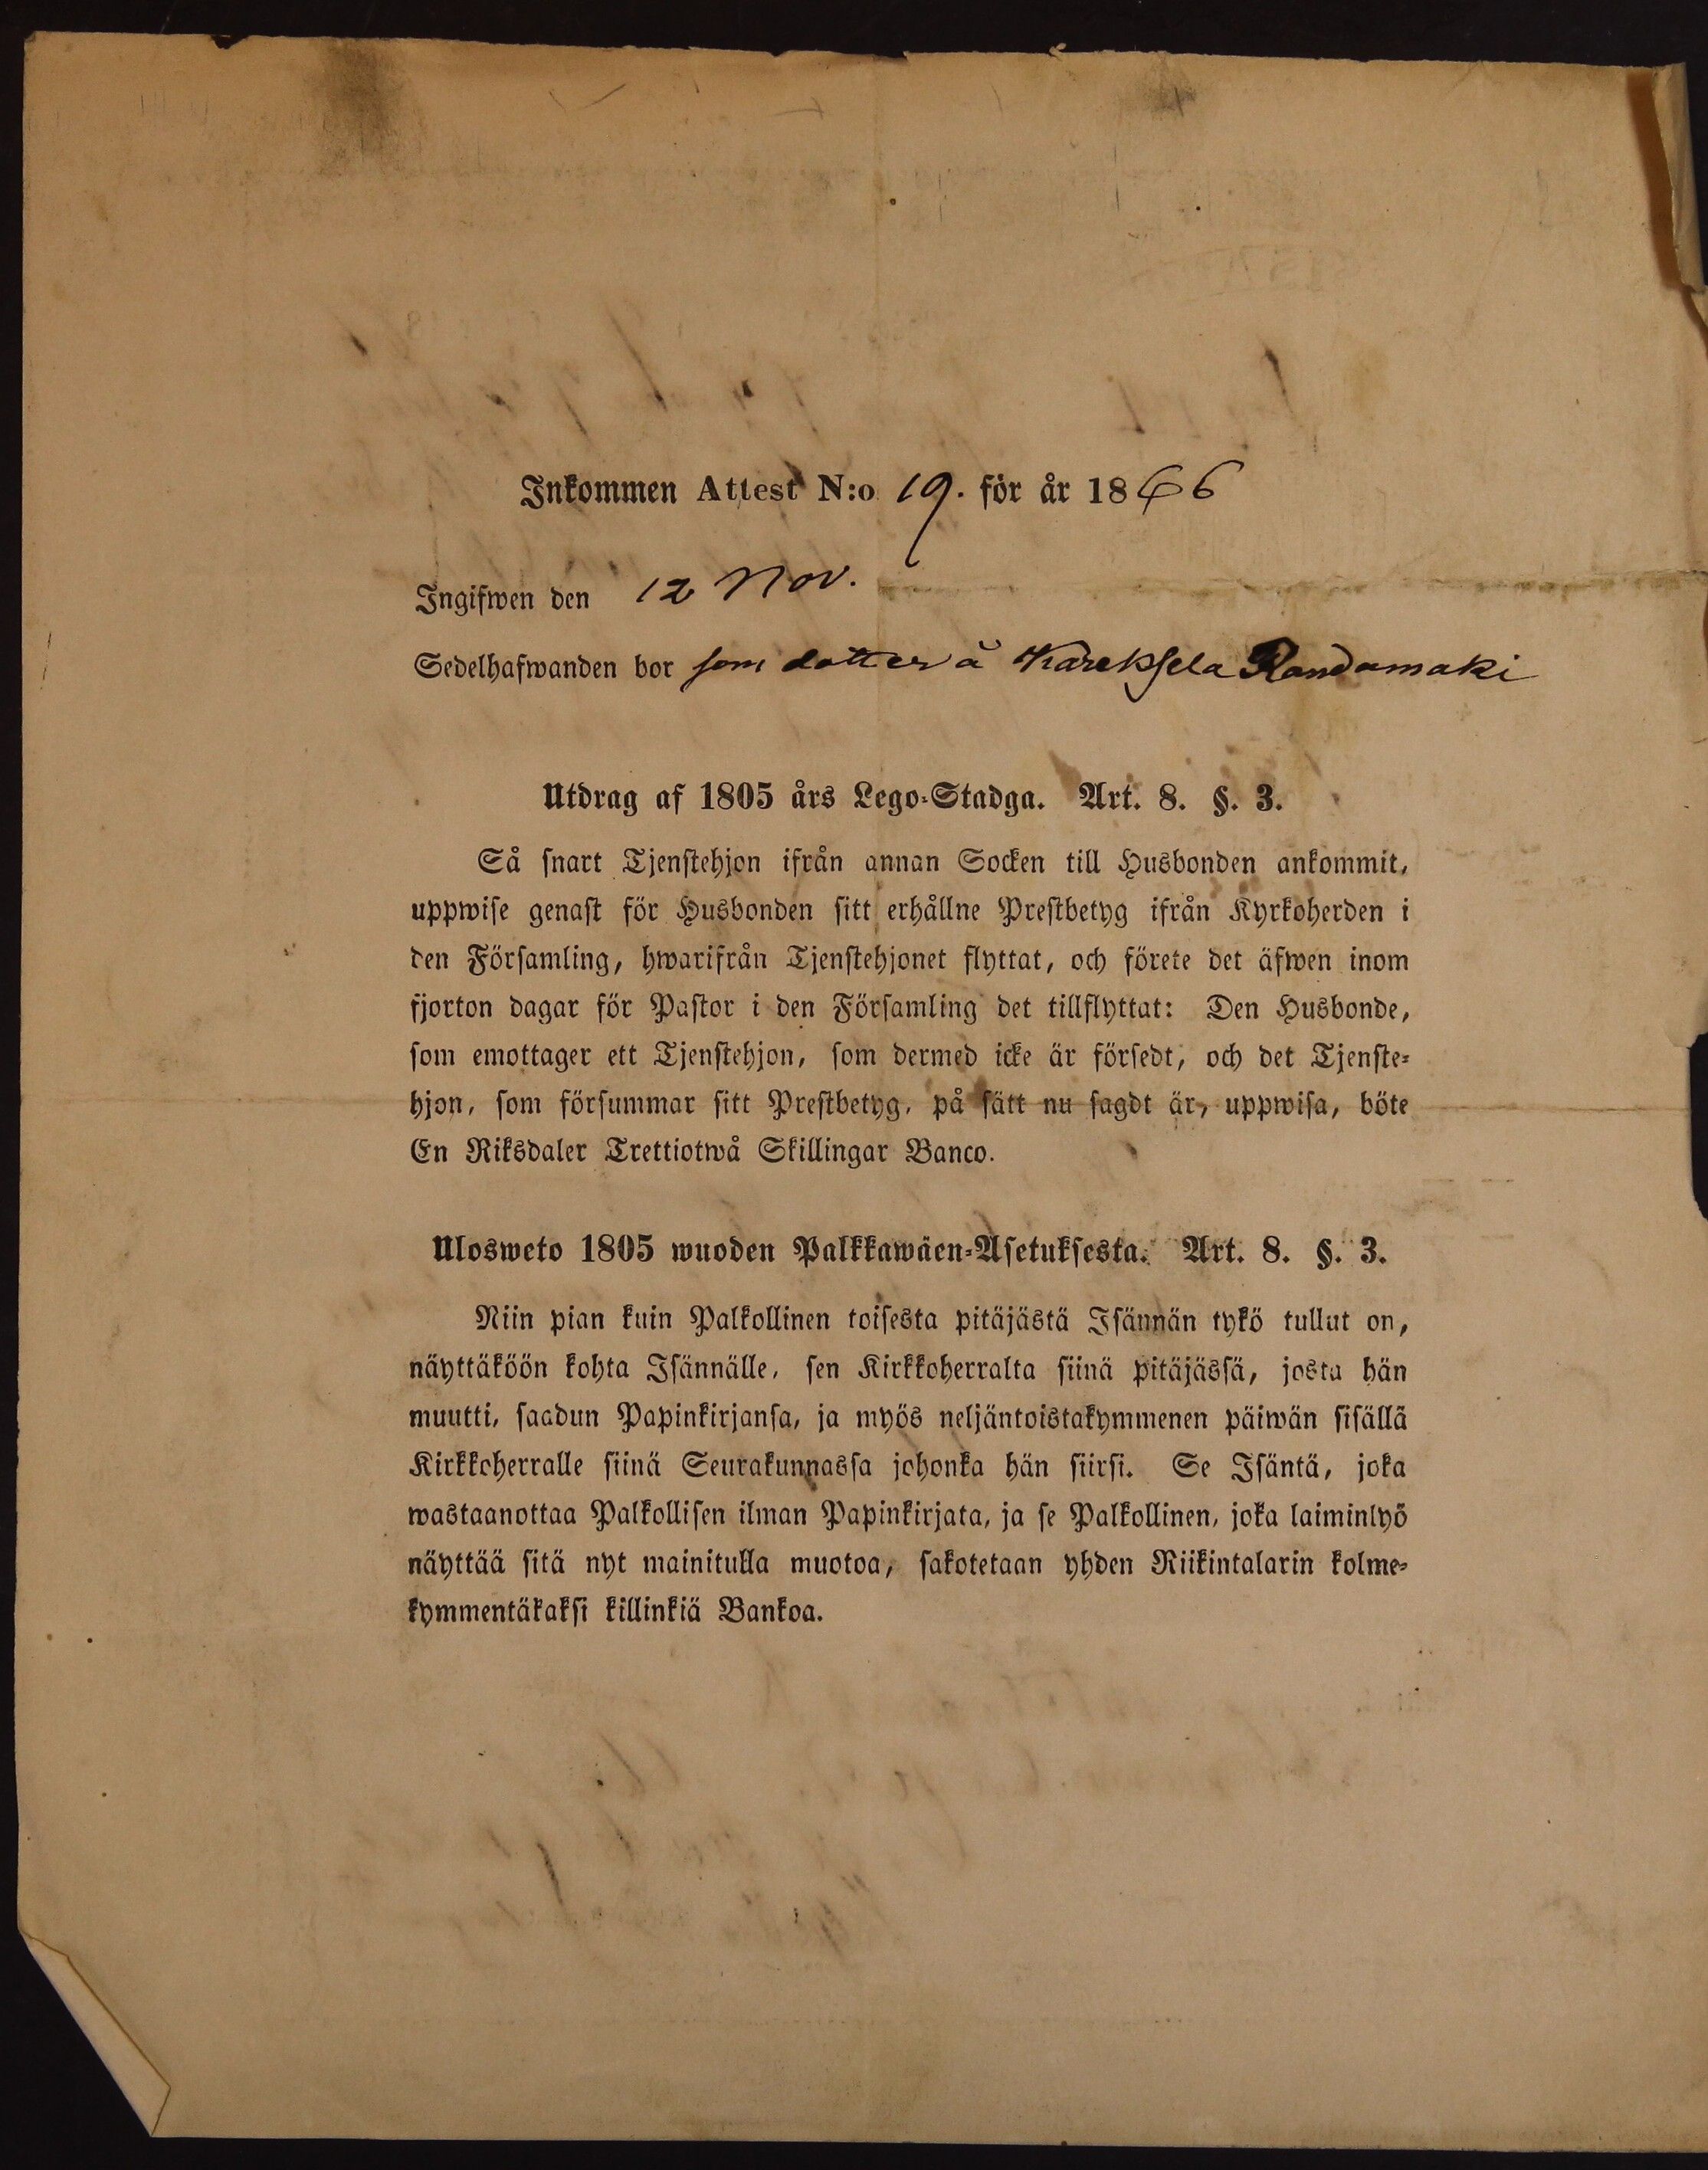 Inkommen Attest N:o 19. för år 1866
Ingifwen den 12 Nov.
Sedelhafwanden bor som dotter å Kareksela Randamaki
Utdrag af 1805 års Lego-Stadga. Art. 8. §. 3.
Så snart Tjenstehjon ifrån annan Socken till Husbonden ankommit,
uppwise genast för Husbonden sitt erhållne Prestbetyg ifrån Kyrkoherden i
den Församling, hwarifrån Tjenstehjonet flyttat, och förete det äfwen inom
fjorton dagar för Pastor i den Församling det tillflyttat: Den Husbonde,
som emottager ett Tjenstehjon, som dermed icke är försedt, och det Tjenste-
hjon, som försummar sitt Prestbetyg, på sätt nu sagdt är, uppwisa, böte
En Riksdaler Trettiotwå Skillingar Banco.
Ulosweto 1805 wuoden Palkkawäen-Asetuksesta. Art. 8. §. 3.
Niin pian kuin Palkollinen toisesta pitäjästä Isännän tykö tullut on,
näyttäköön kohta Isännälle, sen Kirkkoherralta siinä pitäjässä, josta hän
muutti, saadun Papinkirjansa, ja myös neljäntoistakymmenen päiwän sisällä
Kirkkoherralle siinä Seurakunnassa johonka hän siirsi. Se Isäntä, joka
wastaanottaa Palkollisen ilman Papinkirjata, ja se Palkollinen, joka laiminlyö
näyttää sitä nyt mainitulla muotoa, sakotetaan yhden Riikintalarin kolme-
kymmentäkaksi killinkiä Bankoa.